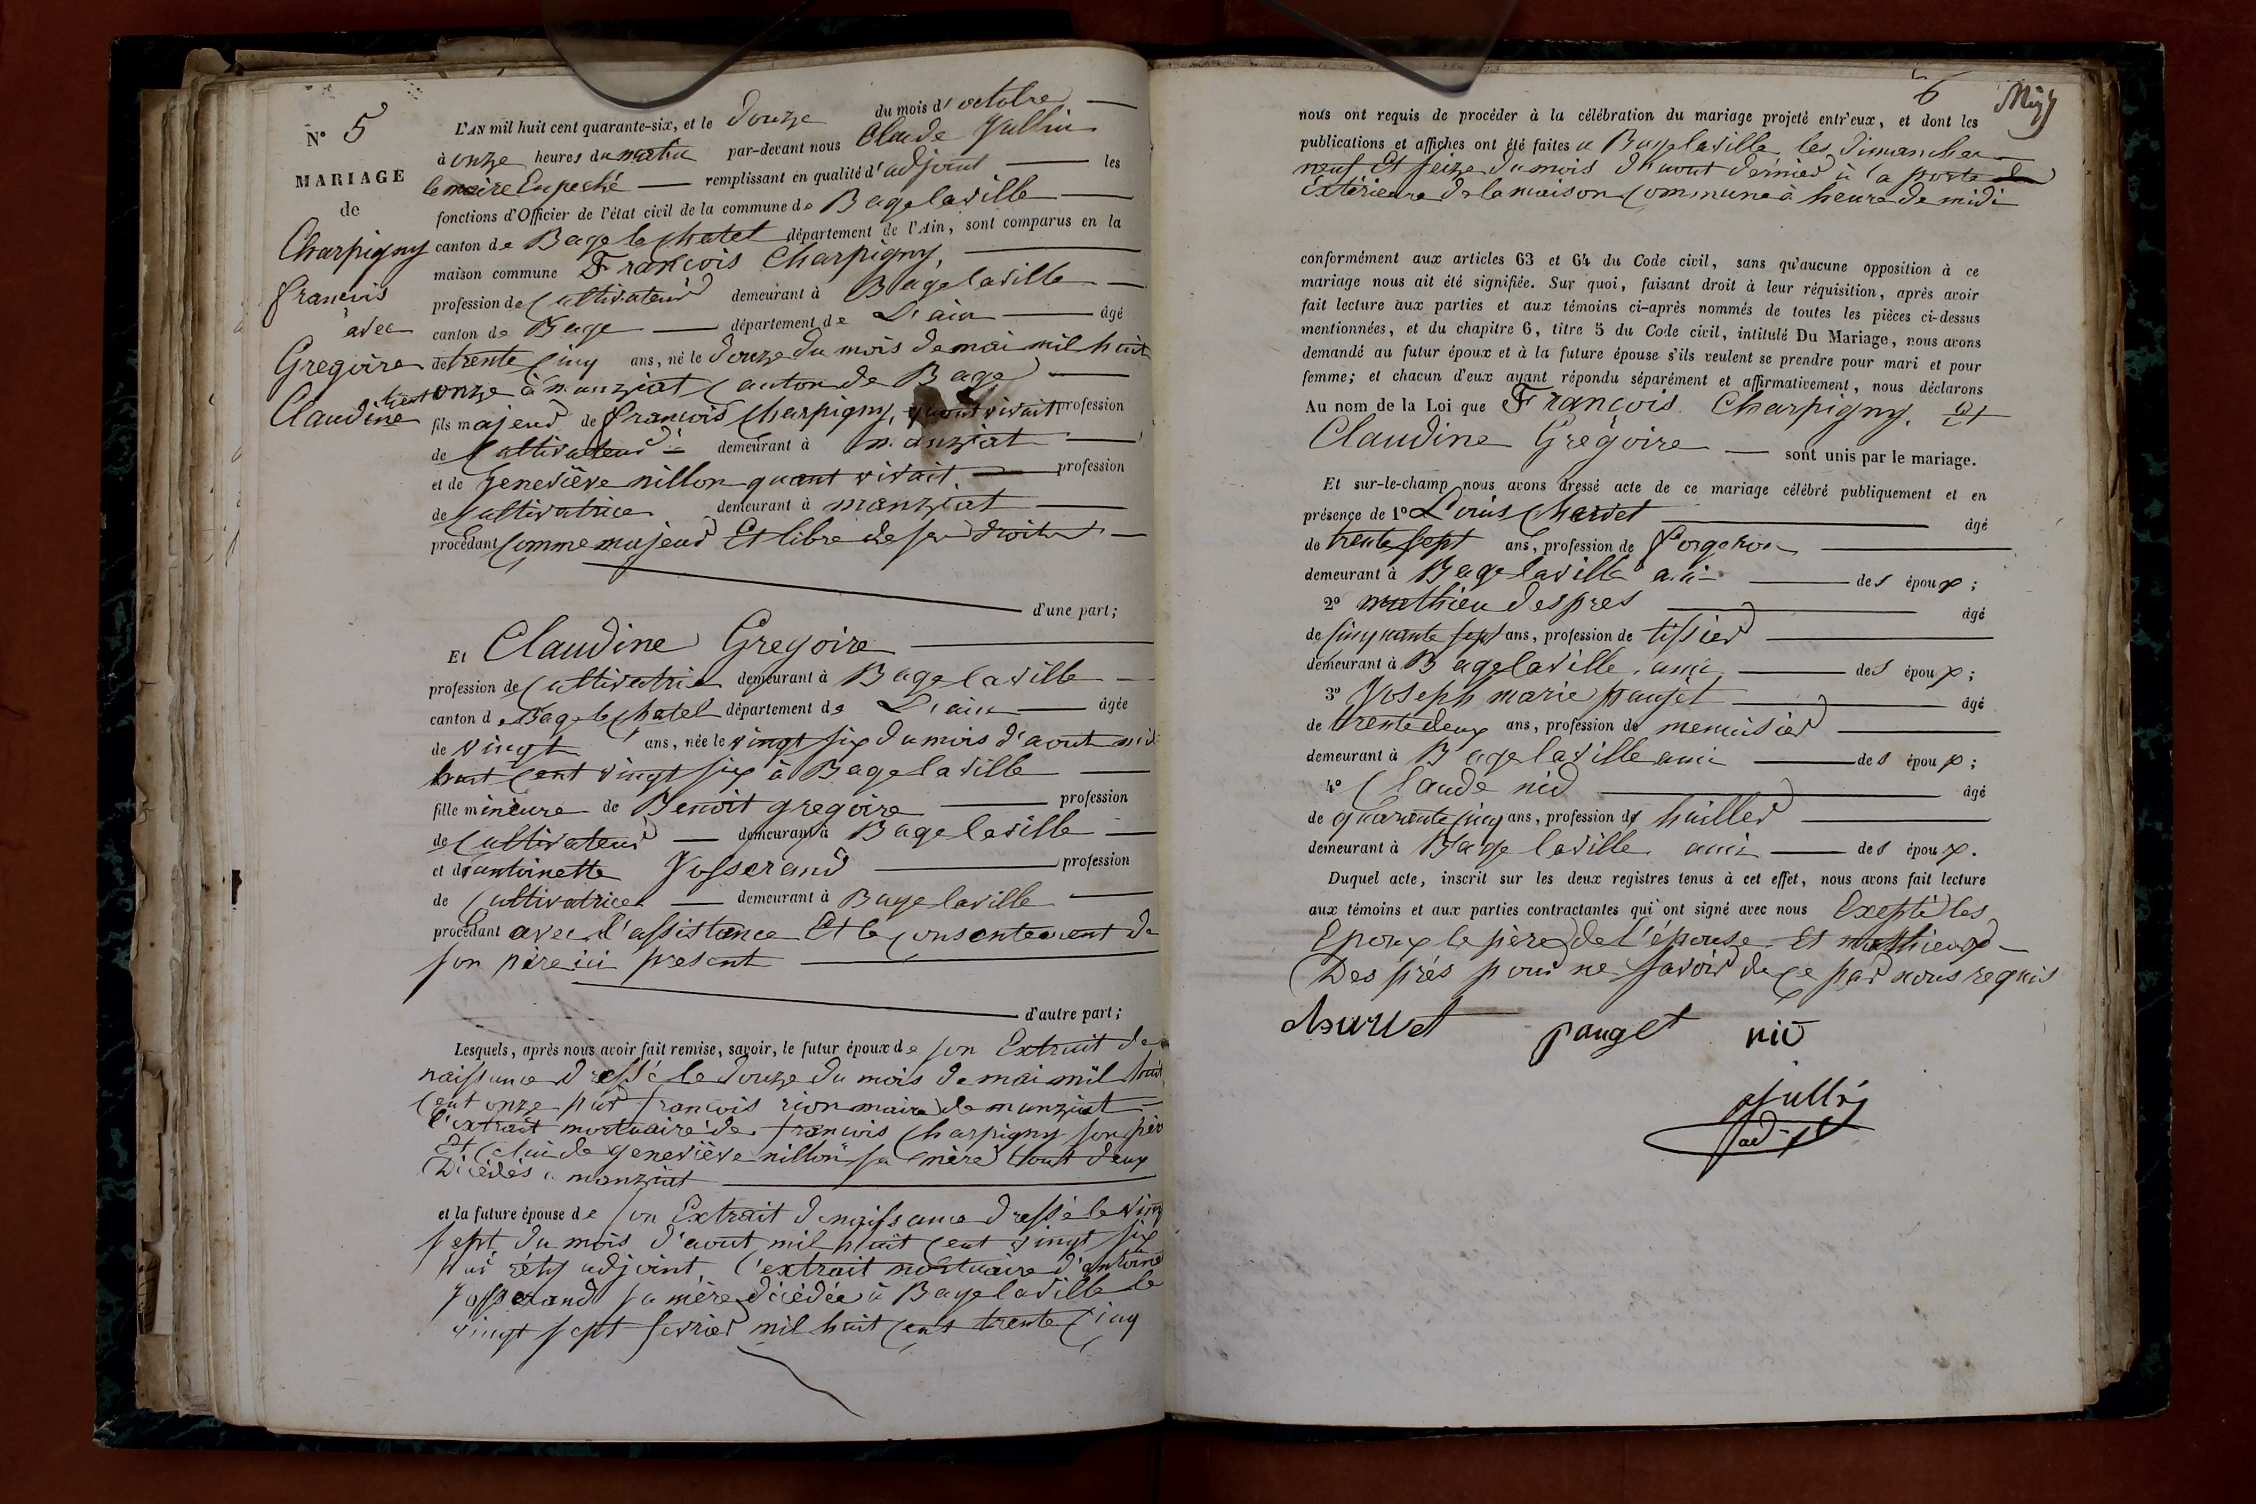 N° 5
MARIAGE
de
Charpigny
françois
avec
Gregoire
Claudine
L'AN mil huit cent quarante-six, et le douze du mois d'octobre
à onze heures du matin par-devant nous Claude Jullin
le maire Enpeché remplissant en qualité d'adjoint les
fonctions d'Officier de l'état civil de la commune de Bagelaville
canton de Bage le chatel département de l'Ain, sont comparus en la
maison commune François Charpigny,
profession de Cultivateur demeurant à Bagelaville
canton de Bage département de L'ain âgé
de trente Cinq ans, né le douze du mois de mai mil huit
cent onze à manziat Canton de Bage
fils majeur de françois Charpigny, quant vivait profession
de Cultivateur demeurant à manziat
et de Geneviève nillon quant vivait profession
de Cultivatrice demeurant à manziat
procédant Comme majeur Et libre de ses droits
d'une part;
Et Claudine Gregoire
profession de Cultivatrice demeurant à Bagelaville
canton de Bage le Chatel département de L'ain âgée
de vingt ans, née le vingt six du mois d'aout mil
huit Cent vingt six à Bagelaville
fille mineure de Benoit gregoire profession
de Cultivateur demeurant à Bagelaville
et d'antoinette Josserand profession
de Cultivatrice demeurant à Bagelaville
procédant avec l'assistance Et le Consentement de
son père ici present
d'autre part;
Lesquels, après nous avoir fait remise, savoir, le futur époux de son Extrait de
naissance dressé le douze du mois de mai mil huit
Cent onze par françois rion maire de manziat
l'extrait mortuaire de françois Charpigny son père
Et Celui de geneviève nillon sa mère tout deux
Décédés à manziat
et la future épouse de son Extrait de naissance dressé le vingt
sept du mois d'aout mil huit Cent vingt six
par réty adjoint, l'extrait mortuaire d'antoinette
Josserand sa mère décédée à Bagelaville le
vingt sept fevrier mil huit Cent trente Cinq
6
nous ont requis de procéder à la célébration du mariage projeté entr'eux, et dont les
publications et affiches ont été faites à Bagelaville les dimanches
neuf Et seize du mois d'aout dernier à la porte
Extérieure de la maison Commune à heure de midi
conformément aux articles 63 et 64 du Code civil, sans qu'aucune opposition à ce
mariage nous ait été signifiée. Sur quoi, faisant droit à leur réquisition, après avoir
fait lecture aux parties et aux témoins ci-après nommés de toutes les pièces ci-dessus
mentionnées, et du chapitre 6, titre 5 du Code civil, intitulé Du Mariage, nous avons
demandé au futur époux et à la future épouse s'ils veulent se prendre pour mari et pour
femme; et chacun d'eux ayant répondu séparément et affirmativement, nous déclarons
Au nom de la Loi que François Charpigny. Et
Claudine Gregoire sont unis par le mariage.
Et sur-le-champ nous avons dressé acte de ce mariage célébré publiquement et en
présence de 1° Louis Charvet âgé
de trente sept ans, profession de forgeron
demeurant à Bagelaville ami des époux;
2° mathieu despres âgé
de Cinquante sept ans, profession de tissier
demeurant à Bagelaville ami des époux;
3° Joseph marie pauget âgé
de trente deux ans, profession de menuisier
demeurant à Bagelaville ami des époux;
4° Claude nid âgé
de quarante Cinq ans, profession de huiller
demeurant à Bagelaville ami des époux.
Duquel acte, inscrit sur les deux registres tenus à cet effet, nous avons fait lecture
aux témoins et aux parties contractantes qui ont signé avec nous Exepté les
Epoux le père de l'épouse Et mathieu
Després pour ne savoir de Ce par nous requis
charvet pauget nid
Jullin
adj